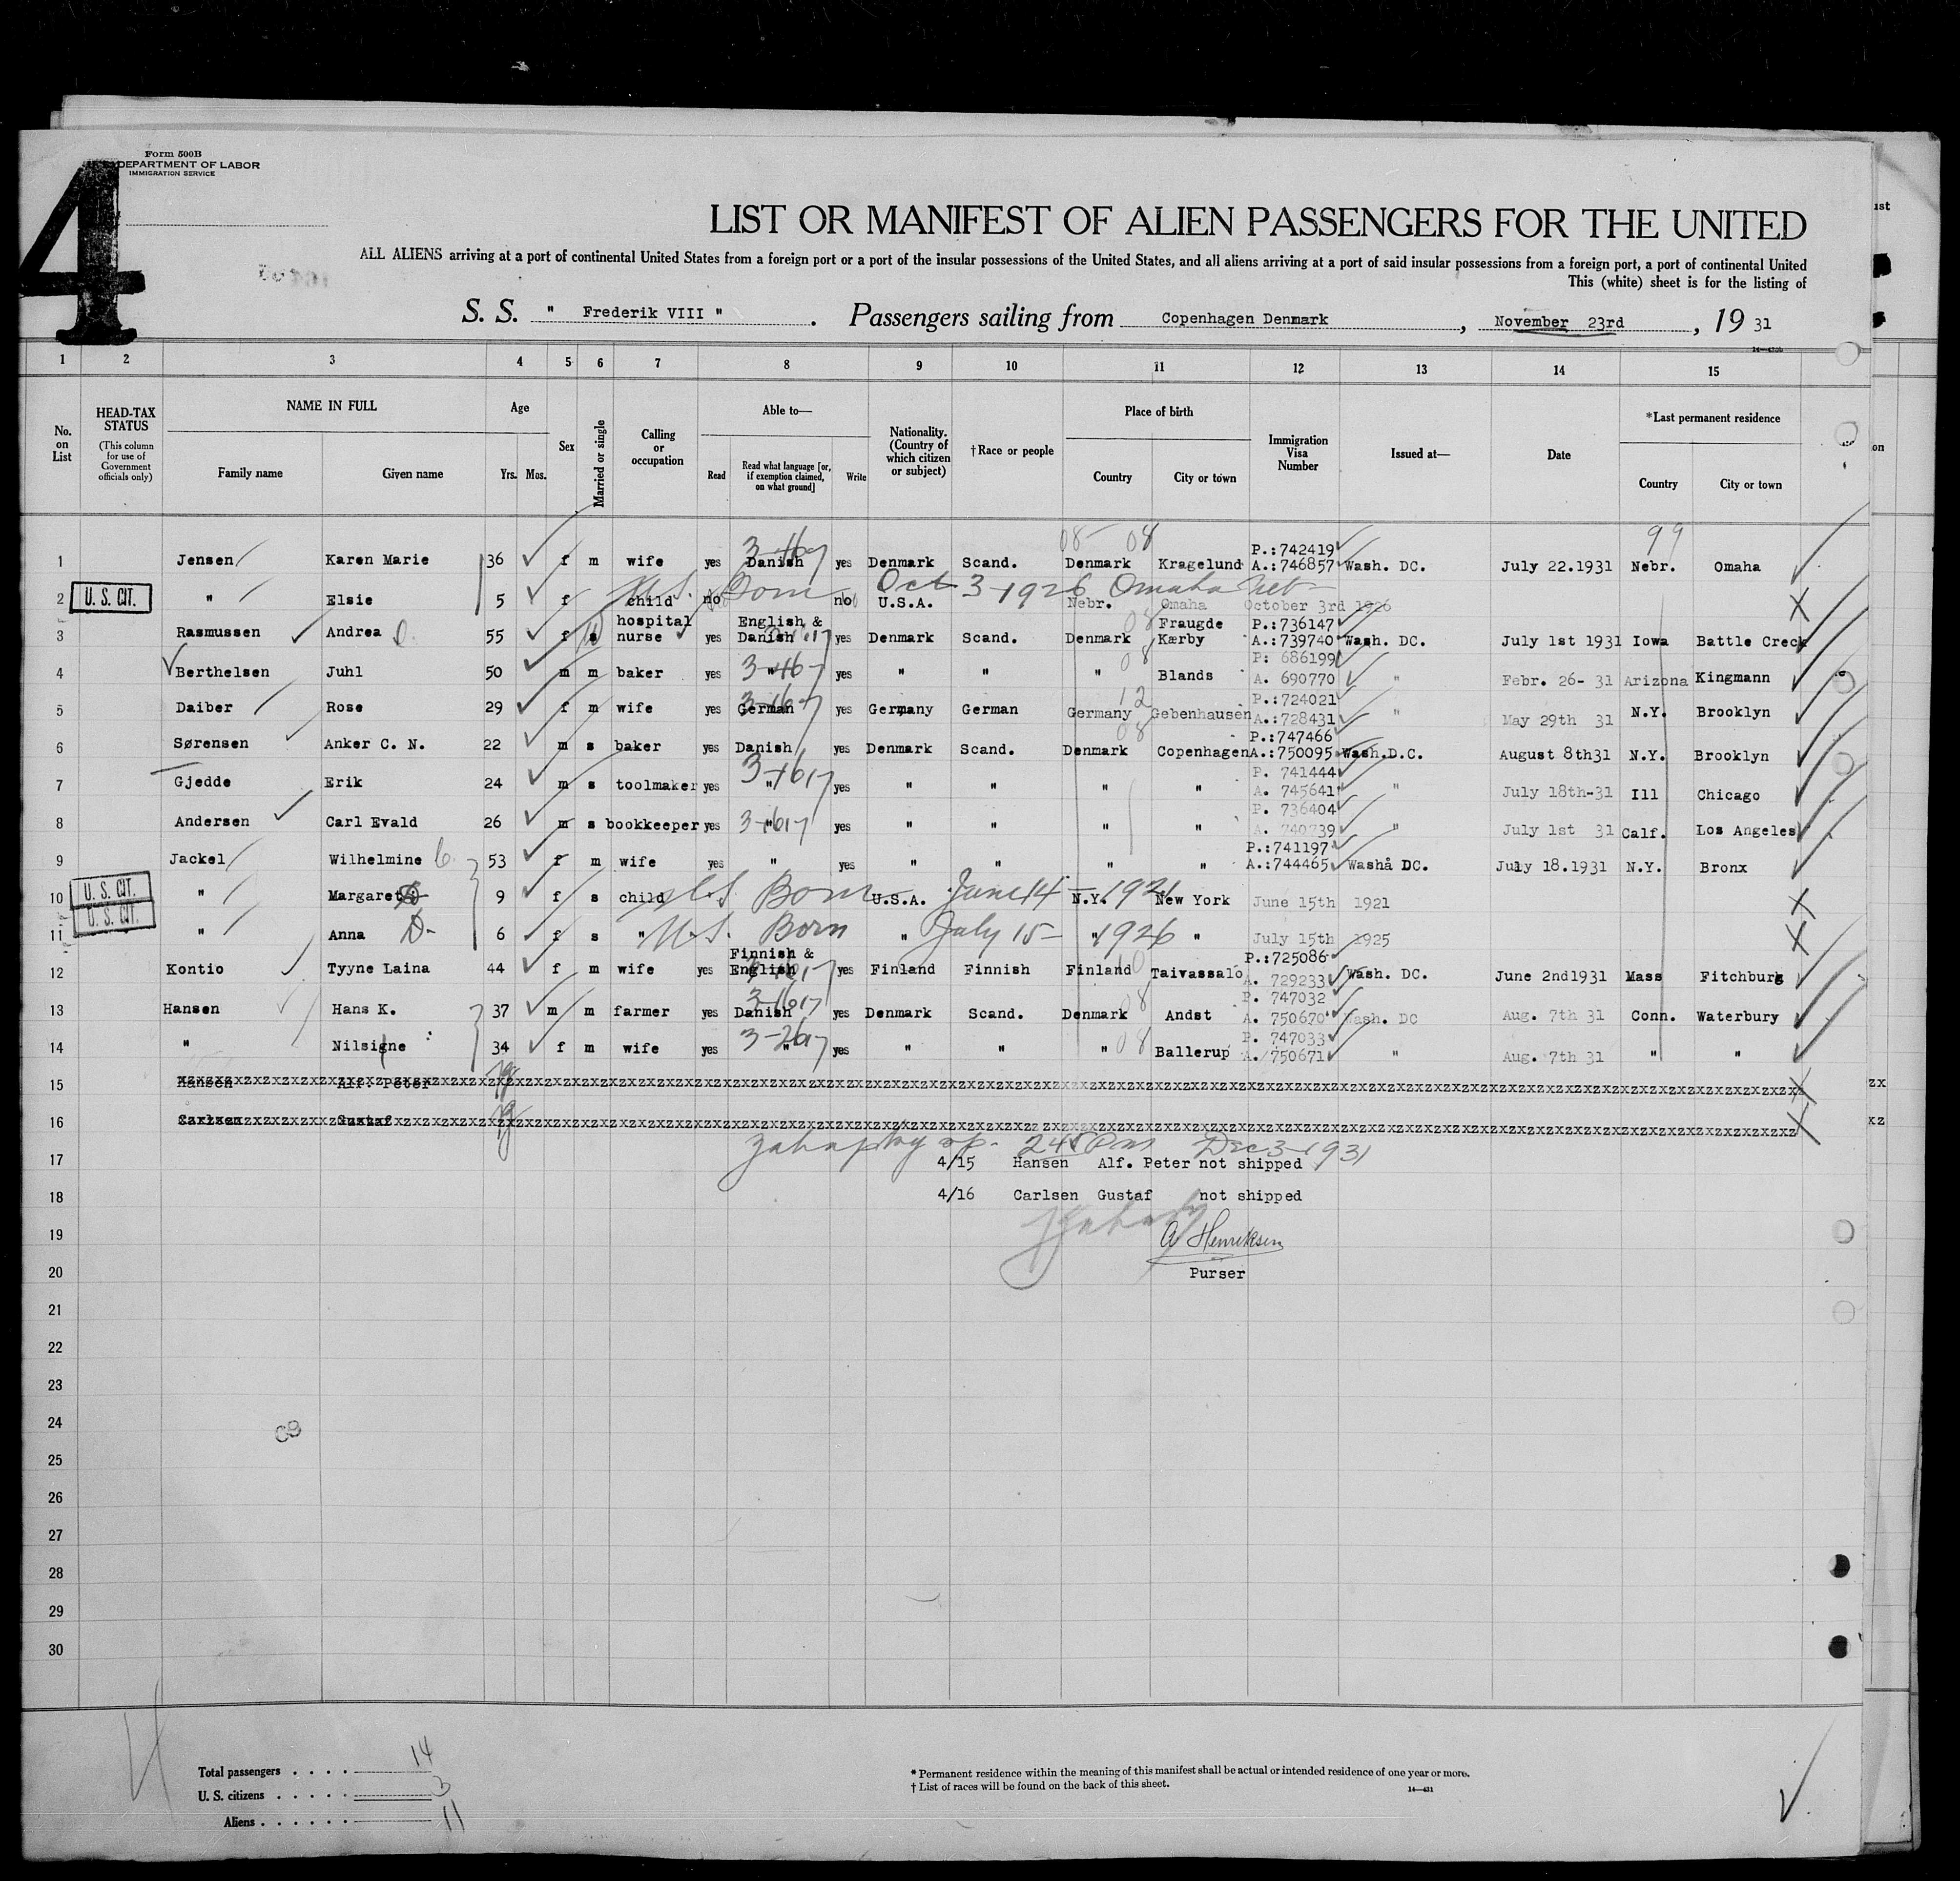 4
Form 500B
DEPARTMENT OF LABOR
IMMIGRATION SERVICE
LIST OR MANIFEST OF ALIEN PASSENGERS FOR THE UNITED
ALL ALIENS arriving at a port of continental United States from a foreign port or a port of the insular possessions of the United States, and all aliens arriving at a port of said insular possessions from a foreign port, a port of continental United
This (white) sheet is for the listing of
S. S. " Frederik VIII ". Passengers sailing from Copenhagen Denmark, November 23rd, 19 31
1 2 3 4 5 6 7 8 9 10 11 12 13 14 15
No. on List HEAD-TAX STATUS (This column for use of Government officials only) NAME IN FULL Family name Given name Age Yrs. Mos. Sex Married or single Calling or occupation Able to— Read Read what language [or, if exemption claimed, on what ground] Write Nationality. (Country of which citizen or subject) †Race or people Place of birth Country City or town Immigration Visa Number Issued at— Date *Last permanent residence Country City or town
1 Jensen Karen Marie 36 f m wife yes Danish yes Denmark Scand. Denmark Kragelund P.:742419 A.:746857 Wash. DC. July 22.1931 Nebr. Omaha
2 U. S. CIT. " Elsie 5 f child no no U.S.A. Nebr. Omaha October 3rd 1926
U.S. Born Oct 3-1926 Omaha Neb
3 Rasmussen Andrea 55 f s hospital nurse yes English & Danish yes Denmark Scand. Denmark Fraugde Kærby P.:736147 A.:739740 Wash. DC. July 1st 1931 Iowa Battle Creck
4 Berthelsen Juhl 50 m m baker yes " yes " " " Blands P: 686199 A. 690770 " Febr. 26- 31 Arizona Kingmann
5 Daiber Rose 29 f m wife yes German yes Germany German Germany Gebenhausen P.:724021 A.:728431 " May 29th 31 N.Y. Brooklyn
6 Sørensen Anker C. N. 22 m s baker yes Danish yes Denmark Scand. Denmark Copenhagen P.:747466 A.:750095 Wash.D.C. August 8th31 N.Y. Brooklyn
7 Gjedde Erik 24 m s toolmaker yes " yes " " " " P. 741444 A. 745641 " July 18th-31 Ill Chicago
8 Andersen Carl Evald 26 m s bookkeeper yes " yes " " " " P. 736404 A. 740739 " July 1st 31 Calf. Los Angeles
9 Jackel Wilhelmine C. 53 f m wife yes " yes " " " " P.:741197 A.:744465 Washå DC. July 18.1931 N.Y. Bronx
10 U. S. CIT. " Margaret 9 f s child U.S. Born U.S.A. June 14-1921 N.Y. New York June 15th 1921
11 U. S. CIT. " Anna D- 6 f s " U.S. Born " July 15-1926 " " July 15th 1925
12 Kontio Tyyne Laina 44 f m wife yes Finnish & English yes Finland Finnish Finland Taivassalo P.:725086 A. 729233 Wash. DC. June 2nd1931 Mass Fitchburg
13 Hansen Hans K. 37 m m farmer yes Danish yes Denmark Scand. Denmark Andst P. 747032 A. 750670 Wash. DC Aug. 7th 31 Conn. Waterbury
14 " Nilsigne 34 f m wife yes " yes " " " Ballerup P. 747033 A. 750671 " Aug. 7th 31 " "
15 Hansen Alf. Peter
16 Carlsen Gustaf
245 Pm Dec 3-1931
17 4/15 Hansen Alf. Peter not shipped
18 4/16 Carlsen Gustaf not shipped
19 A Henriksen
20 Purser
21
22
23
24
25
26
27
28
29
30
Total passengers . . . . 14
U. S. citizens . . . . . 3
Aliens . . . . . . 11
* Permanent residence within the meaning of this manifest shall be actual or intended residence of one year or more.
† List of races will be found on the back of this sheet.
14—431